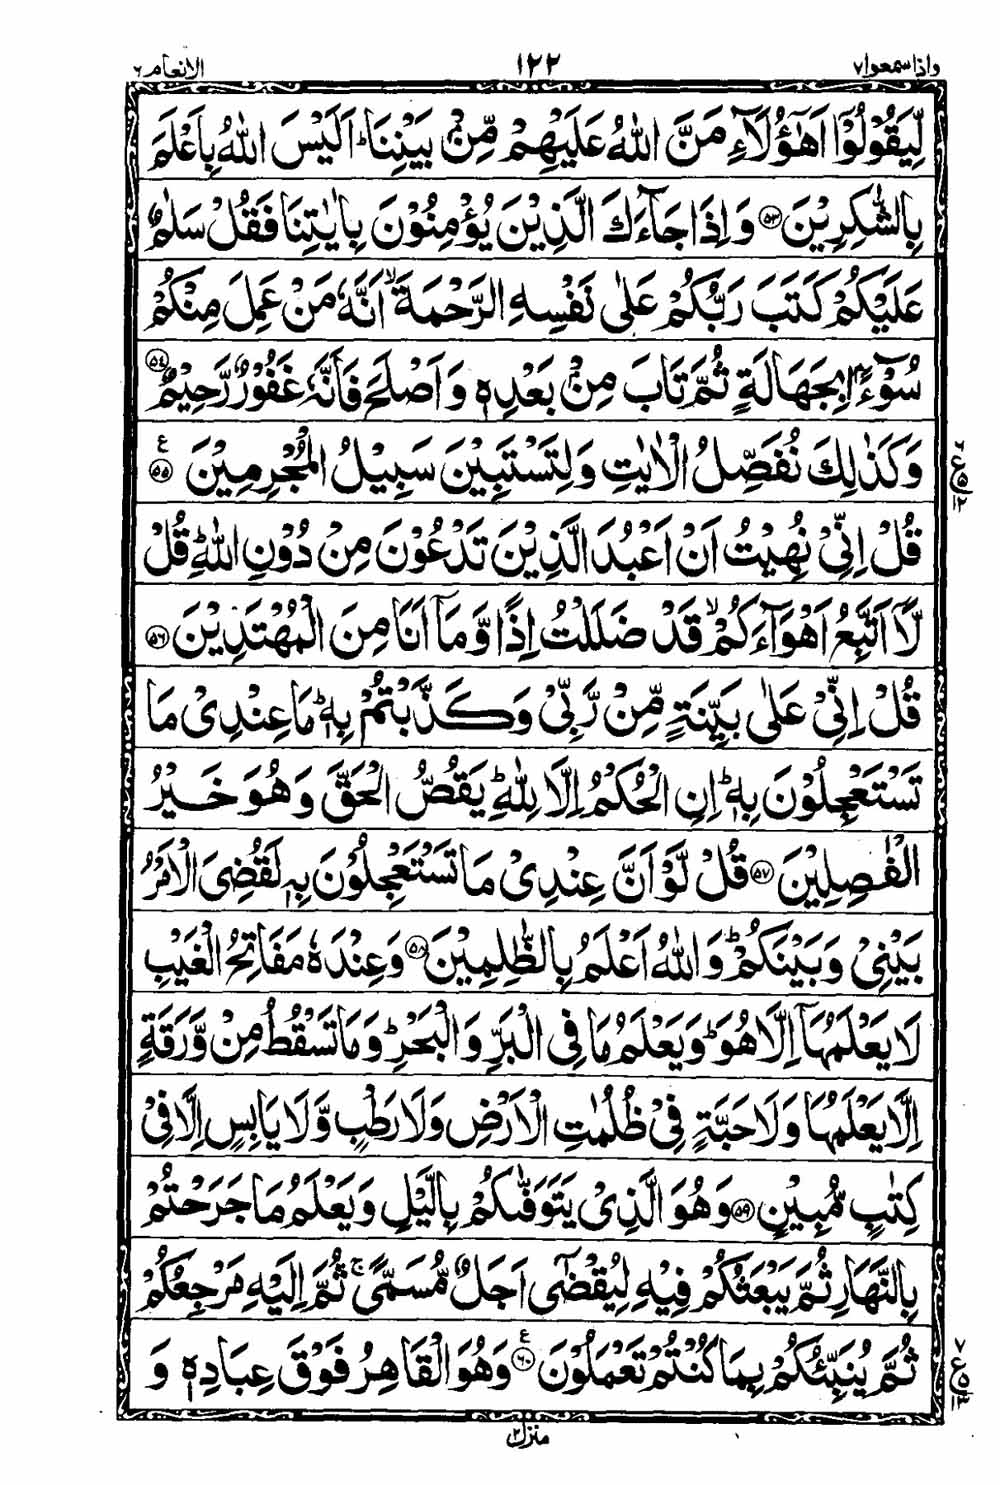 واذاسمعوا۷ ۱۲۲ الانعام۶
لِّيَقُوۡلُوۡۤا اَهٰٓؤُلَآءِ مَنَّ اللّٰهُ عَلَيۡهِمۡ مِّنۡۢ بَيۡنِنَا ؕ اَلَيۡسَ اللّٰهُ بِاَعۡلَمَ
بِالشّٰكِرِيۡنَ ۵۳ وَاِذَا جَآءَكَ الَّذِيۡنَ يُؤۡمِنُوۡنَ بِاٰيٰتِنَا فَقُلۡ سَلٰمٌ
عَلَيۡكُمۡ كَتَبَ رَبُّكُمۡ عَلٰى نَفۡسِهِ الرَّحۡمَةَ ۙ اَنَّهٗ مَنۡ عَمِلَ مِنۡكُمۡ
سُوۡٓءًۢا بِجَهَالَةٍ ثُمَّ تَابَ مِنۡۢ بَعۡدِهٖ وَاَصۡلَحَ فَاَنَّهٗ غَفُوۡرٌ رَّحِيۡمٌ ۵۴
وَكَذٰلِكَ نُفَصِّلُ الۡاٰيٰتِ وَلِتَسۡتَبِيۡنَ سَبِيۡلُ الۡمُجۡرِمِيۡنَ ۵۵ ع
قُلۡ اِنِّىۡ نُهِيۡتُ اَنۡ اَعۡبُدَ الَّذِيۡنَ تَدۡعُوۡنَ مِنۡ دُوۡنِ اللّٰهِ ؕ قُلۡ
لَّاۤ اَتَّبِعُ اَهۡوَآءَكُمۡ ۙ قَدۡ ضَلَلۡتُ اِذًا وَّمَاۤ اَنَا مِنَ الۡمُهۡتَدِيۡنَ ۵۶
قُلۡ اِنِّىۡ عَلٰى بَيِّنَةٍ مِّنۡ رَّبِّىۡ وَكَذَّبۡتُمۡ بِهٖ ؕ مَا عِنۡدِىۡ مَا
تَسۡتَعۡجِلُوۡنَ بِهٖ ؕ اِنِ الۡحُكۡمُ اِلَّا لِلّٰهِ ؕ يَقُصُّ الۡحَقَّ وَهُوَ خَيۡرُ
الۡفٰصِلِيۡنَ ۵۷ قُلۡ لَّوۡ اَنَّ عِنۡدِىۡ مَا تَسۡتَعۡجِلُوۡنَ بِهٖ لَقُضِىَ الۡاَمۡرُ
بَيۡنِىۡ وَبَيۡنَكُمۡ ؕ وَاللّٰهُ اَعۡلَمُ بِالظّٰلِمِيۡنَ ۵۸ وَعِنۡدَهٗ مَفَاتِحُ الۡغَيۡبِ
لَا يَعۡلَمُهَاۤ اِلَّا هُوَ ؕ وَيَعۡلَمُ مَا فِى الۡبَرِّ وَالۡبَحۡرِ ؕ وَمَا تَسۡقُطُ مِنۡ وَّرَقَةٍ
اِلَّا يَعۡلَمُهَا وَلَا حَبَّةٍ فِىۡ ظُلُمٰتِ الۡاَرۡضِ وَلَا رَطۡبٍ وَّلَا يَابِسٍ اِلَّا فِىۡ
كِتٰبٍ مُّبِيۡنٍ ۵۹ وَهُوَ الَّذِىۡ يَتَوَفّٰٮكُمۡ بِالَّيۡلِ وَيَعۡلَمُ مَا جَرَحۡتُمۡ
بِالنَّهَارِ ثُمَّ يَبۡعَثُكُمۡ فِيۡهِ لِيُقۡضٰٓى اَجَلٌ مُّسَمًّى ۚ ثُمَّ اِلَيۡهِ مَرۡجِعُكُمۡ
ثُمَّ يُنَبِّئُكُمۡ بِمَا كُنۡتُمۡ تَعۡمَلُوۡنَ ۶۰ ع وَهُوَ الۡقَاهِرُ فَوۡقَ عِبَادِهٖ وَ
منزل۲